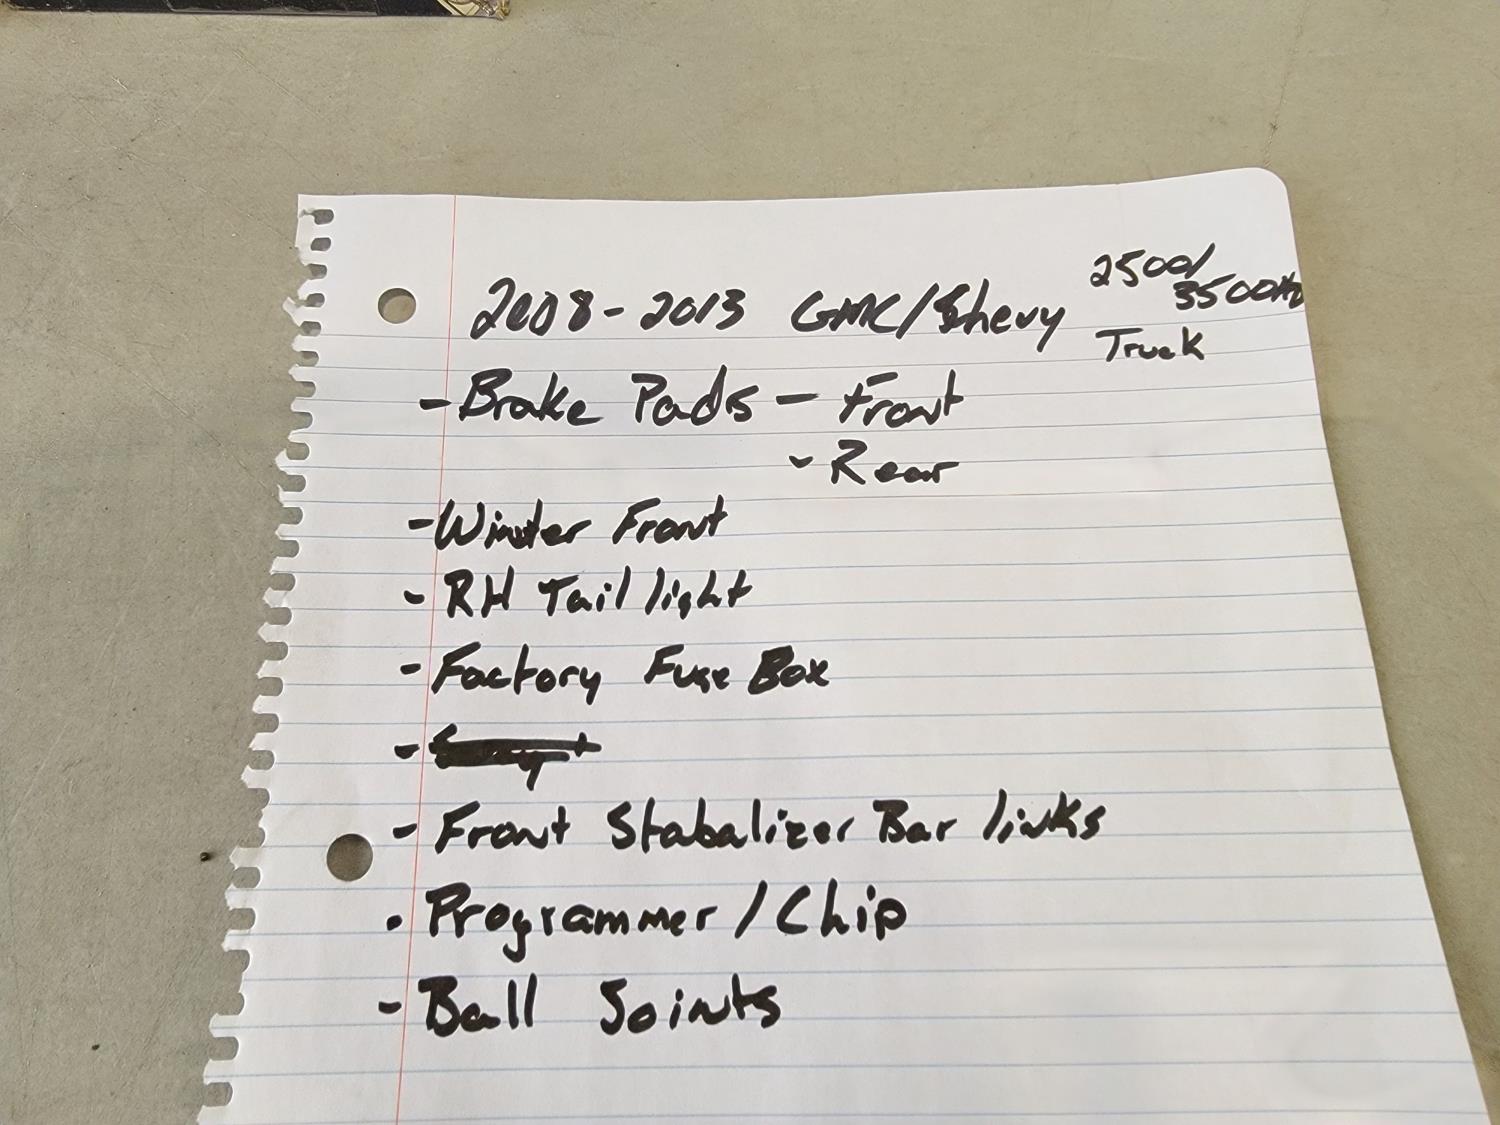 2008-2013 GMC/Chevy 2500/
3500HD
Truck
- Brake Pads - Front
- Rear
- Winter Front
- RH Tail light
- Factory Fuse Box
-
- Front Stabalizer Bar links
- Programmer/Chip
- Ball Joints